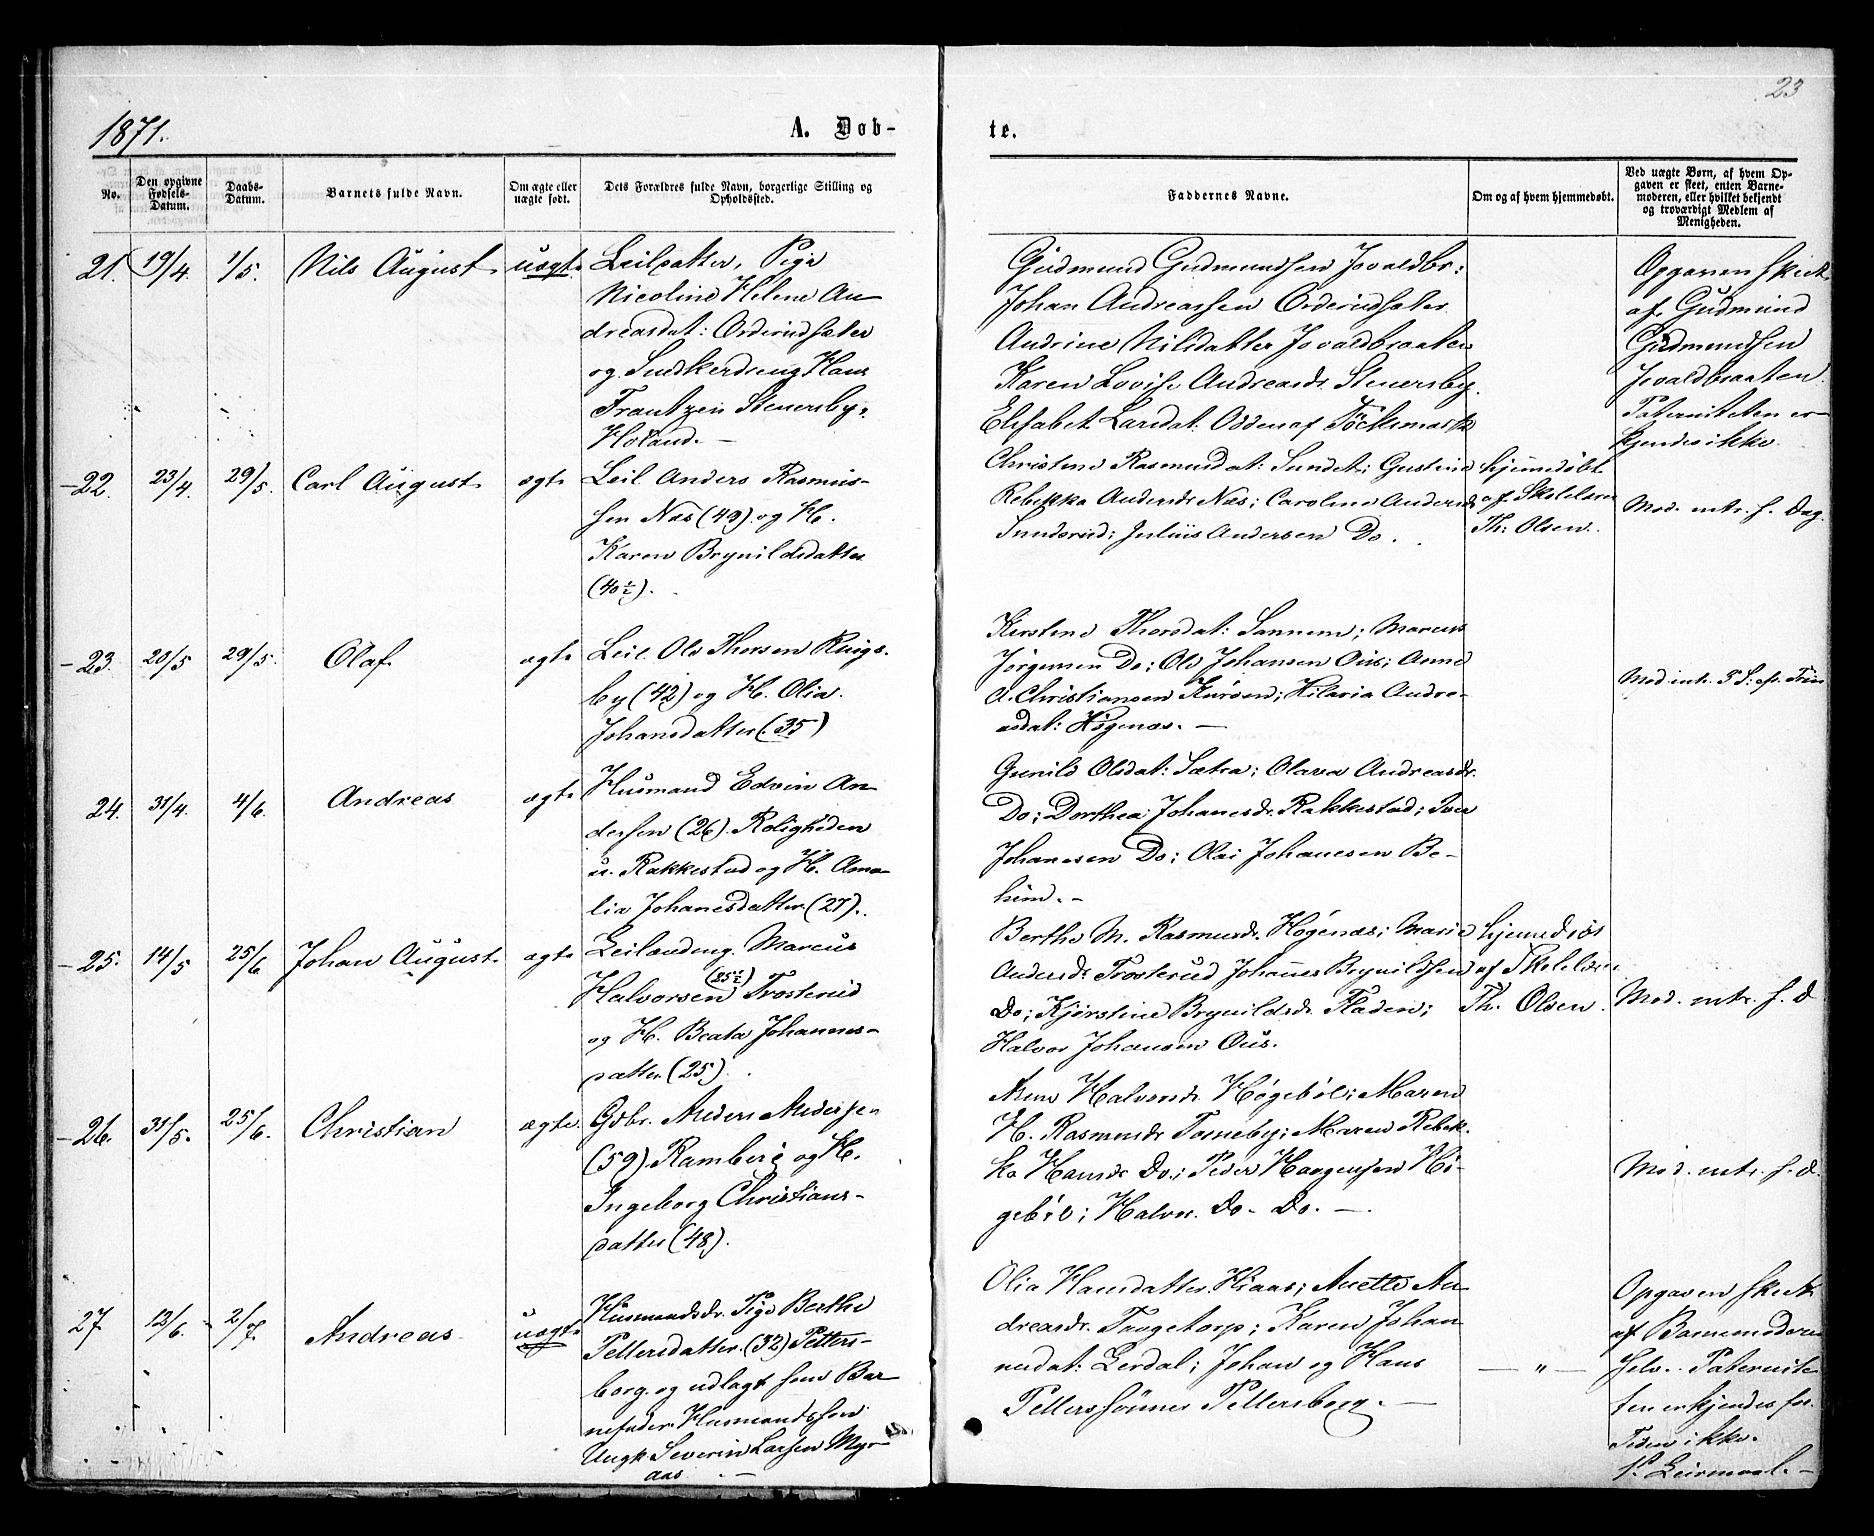 23
1871.
A. Døb-
te.
No.
Den opgivne Fødsels-Datum.
Daabs-Datum.
Barnets fulde Navn.
Om ægte eller uægte født.
Dets Forældres fulde Navn, borgerlige Stilling og Opholdssted.
Faddernes Navne.
Om og af hvem hjemmedøbt.
Ved uægte Børn, af hvem Op-
gaven er skeet, enten Barne-
moderen, eller hvilket bekjendt
og troværdigt Medlem af
Menigheden.
21. 19/4. 1/5. Nils August. uægte
Leildatter, Pige
Nicoline Helene An-
dreasdat: Orderudsæter
og Snedkerdreng Hans
Frantzen Stenersby,
Høland. —
Gudmund Gudmundsen Jovaldbr:
Johan Andreassen Orderudsæter
Andrine Nilsdatter Jovaldbraaten
Karen Lovise Andreasdr. Stenersby.
Elisabet Larsdat: Odden af Töcksmark
Opgaven skeet
af Gudmund
Gudmundsen
Jovaldbraaten.
Paterniteten er-
kjendes ikke.
22. 23/4. 29/5. Carl August. ægte
Leil Anders Rasmus-
sen Næs (49) og H.
Karen Brynildsdatter
(40½).
Christine Rasmusdat: Sundet; Gustine
Rebekka Andersdr. Næs; Caroline Andersdr
Sunderud; Julius Andersen Do.
hjemmedøbt
af Skolelærer
Th: Olsen.
Mod. intr. s. Dag.
23. 20/5 29/5. Olaf. ægte
Leil. Ole Thorsen Rings-
by (42) og H. Olia
Johansdatter (35)
Kirstine Thorsdat: Sannem; Marcus
Jørgensen Do; Ole Johansen Ous; Anne
C. Christiansen Kurøen; Hilaria Andre-
asdat: Høgenæs. —
Mod intr.
24. 31/4. 4/6. Andreas ægte
Husmand Edvin An-
dersen (26) Roligheden
u. Rakkestad og H. Ama-
lia Johanesdatter (27).
Gunild Olsdat: Sætra; Olava Andreasdr.
Do; Dorthea Johanesdr. Rakkestad; Iver
Johanesen Do; Olai Johanesen Be-
him. —
25. 14/5 25/6 Johan August. ægte
Leilænding Marcus
Halvorsen (25½) Trosterud
og H. Beata Johannes-
datter (25).
Berthe M. Rasmusdr. Høgenæs; Marie
Andersdr. Trosterud Johannes Brynildsen
Do; Kjørstine Brynildsdr. Fladen;
Halvor Johansen Ous.
hjemmedøbt
af Skolelærer
Th. Olsen.
Mod. intr. s. d.
26. 31/5. 25/6. Christian ægte.
Gdbr. Anders Andersen
(59) Ramberg og H.
Ingeborg Christians-
datter (48).
Halvorsdr. Høgeböl; Maren
H. Rasmusdr Torneby; Maren Rebek-
ka Hansdr Do; Peder Haagensen Hö-
geböl; Halvor Do. Do. —
Mod. intr. s. d.
27. 12/6. 2/7. Andreas uægte
Husmandsdr. Pige Berthe
Pettersdatter (32) Petters-
borg og udlagt som Bar-
nefader Husmandssøn
Ungk Severin Larsen Myr-
aas —
Olia Hansdatter Kiaas; Anette An-
dreasdr. Taagetorp; Karen Johan-
nesdat: Lerdal; Johan og Hans
Petters sönner Pettersborg. —
— „ —
Opgaven skeet
af Barnemoderen
selv. Paternite-
ten erkjendes for
Tiden ikke.